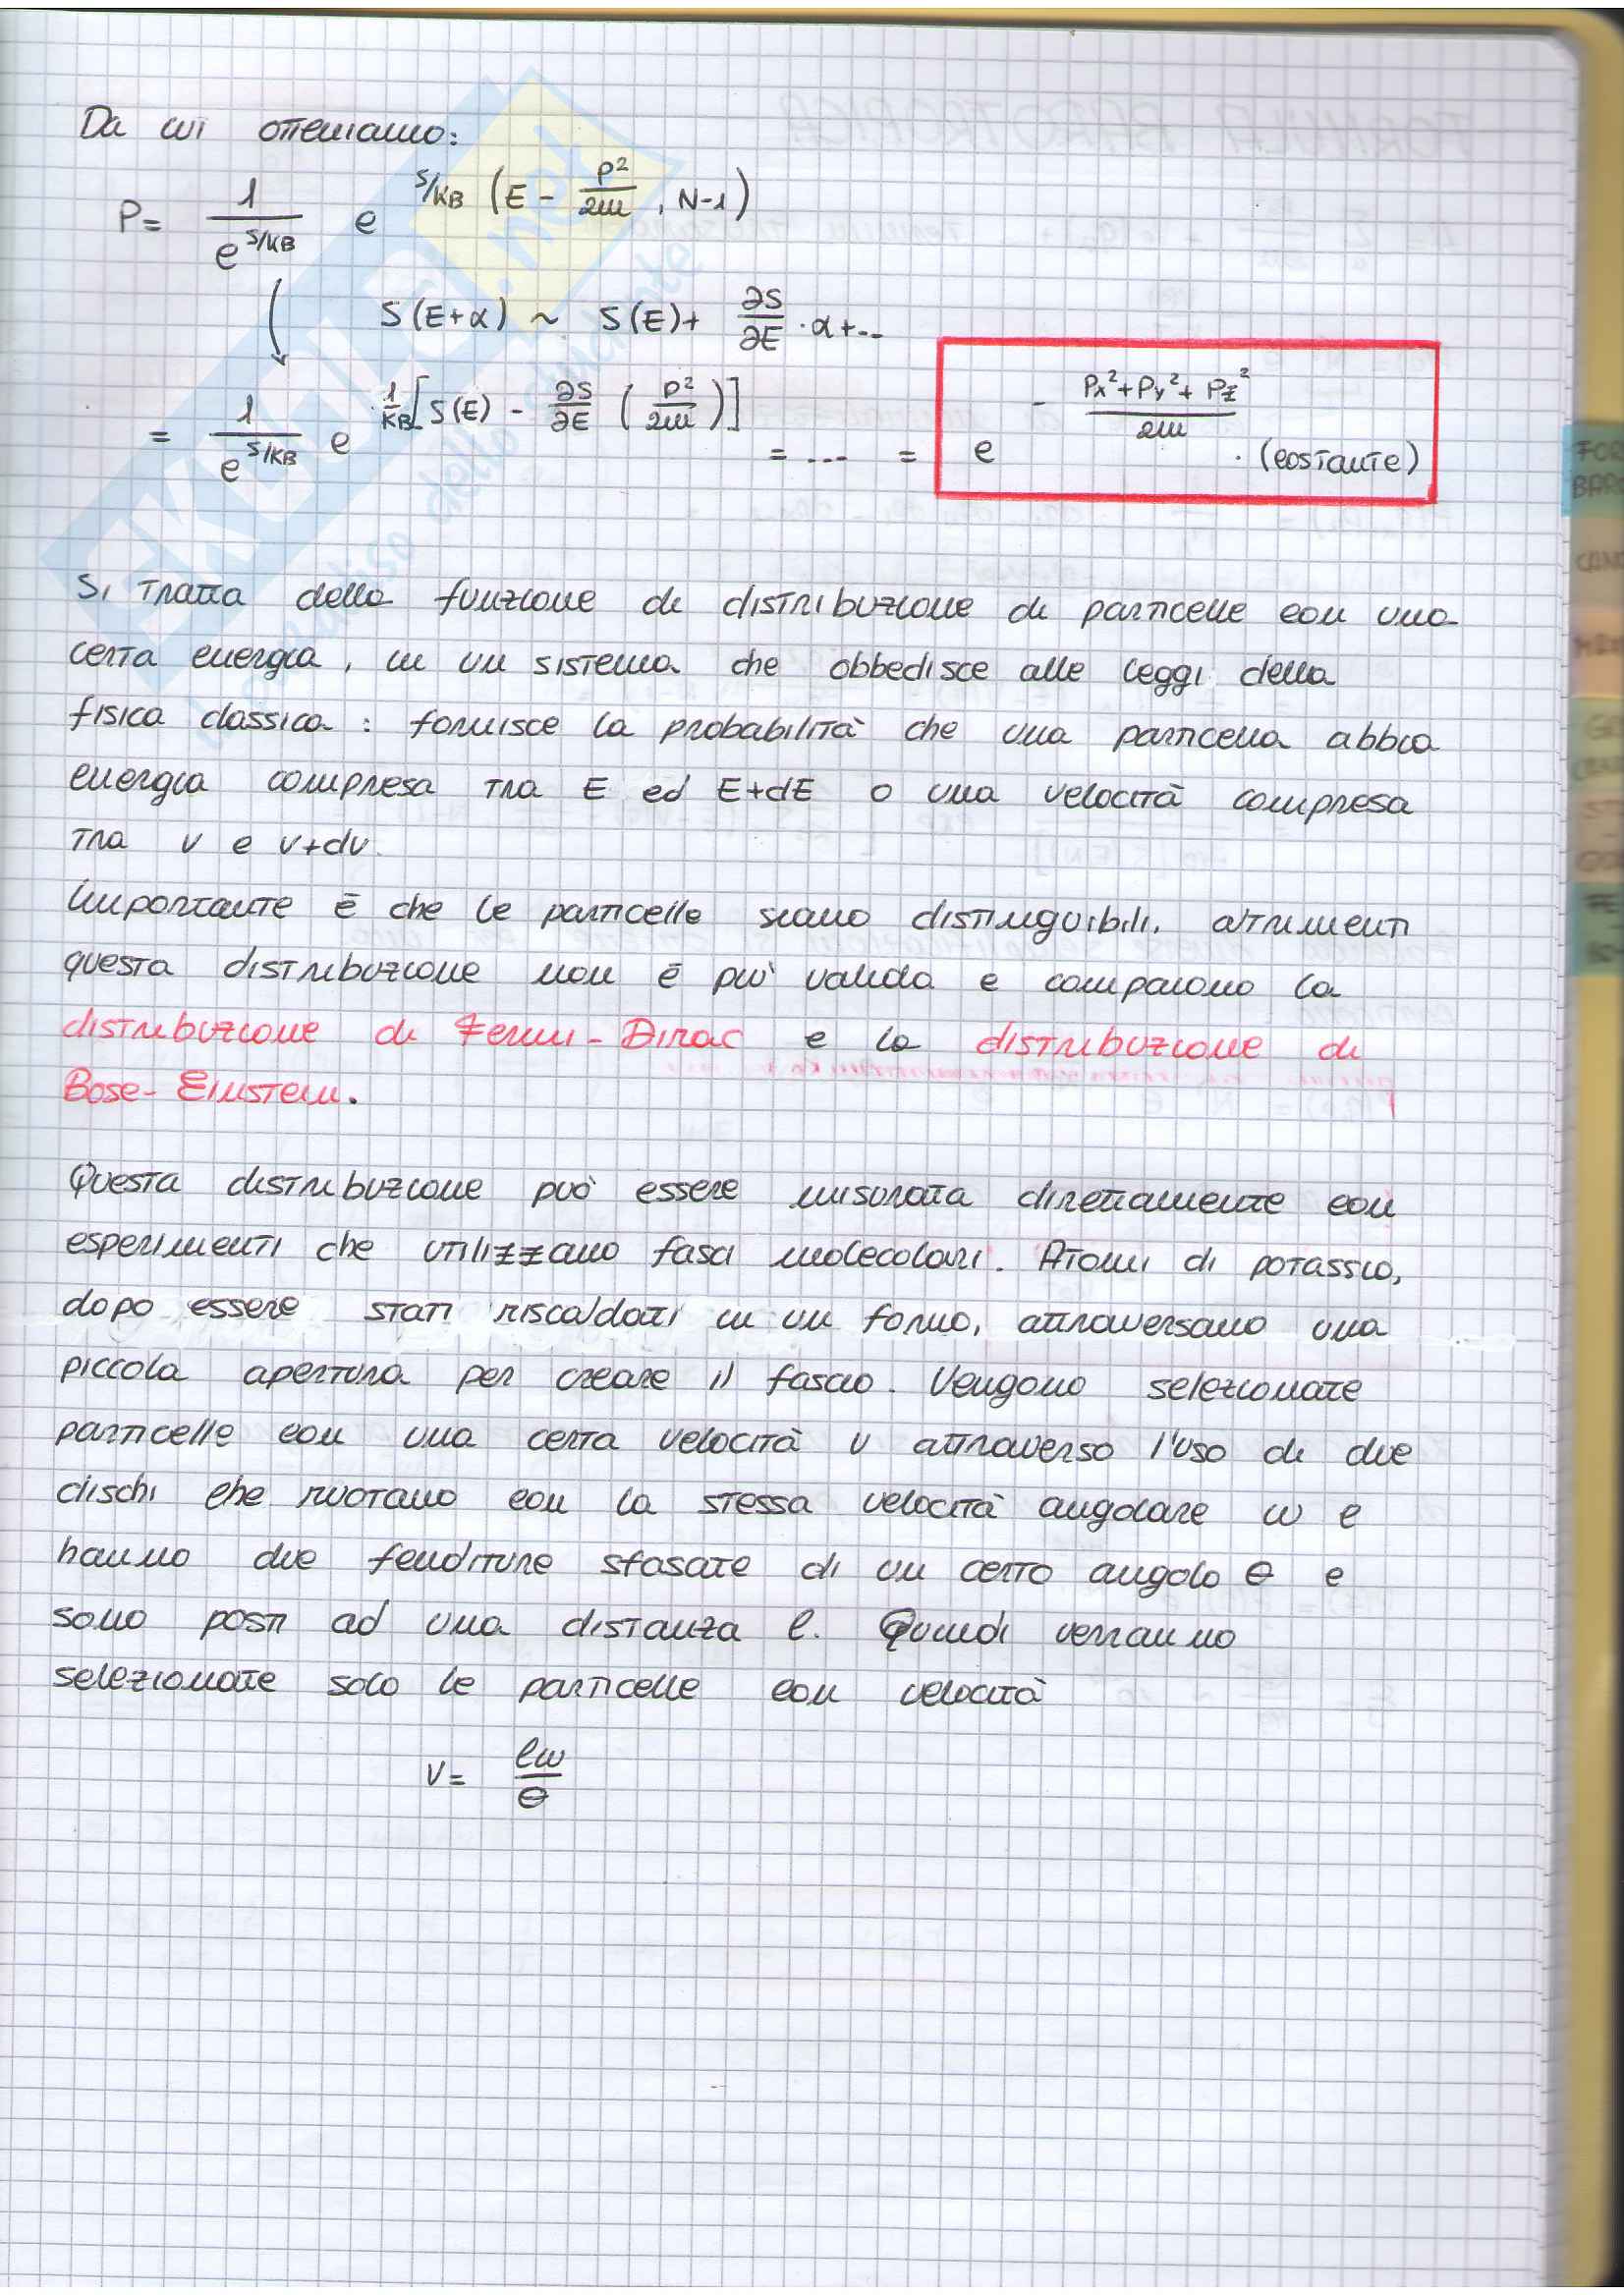 Da cui otteniamo:
P= 1/e^{S/KB} e^{S/KB (E - P²/2m, N-1)}
S(E+α) ~ S(E)+ ∂S/∂E · α+...
= 1/e^{S/KB} e^{1/KB [S(E) - ∂S/∂E (P²/2m)]} = ... = e^{- (Px²+Py²+Pz²)/2m} · (costante)
Si tratta della funzione di distribuzione di particelle con una
certa energia, in un sistema che obbedisce alle leggi della
fisica classica: fornisce la probabilità che una particella abbia
energia compresa tra E ed E+dE o una velocità compresa
tra v e v+dv.
Importante è che le particelle siano distinguibili, altrimenti
questa distribuzione non è più valida e compaiono la
distribuzione di Fermi-Dirac e la distribuzione di
Bose-Einstein.
Questa distribuzione può essere misurata direttamente con
esperimenti che utilizzano fasci molecolari. Atomi di potassio,
dopo essere stati riscaldati in un forno, attraversano una
piccola apertura per creare il fascio. Vengono selezionate
particelle con una certa velocità v attraverso l'uso di due
dischi che ruotano con la stessa velocità angolare ω e
hanno due fenditure sfasate di un certo angolo θ e
sono posti ad una distanza l. Quindi verranno
selezionate solo le particelle con velocità
v= lω/θ
FOR
BAR